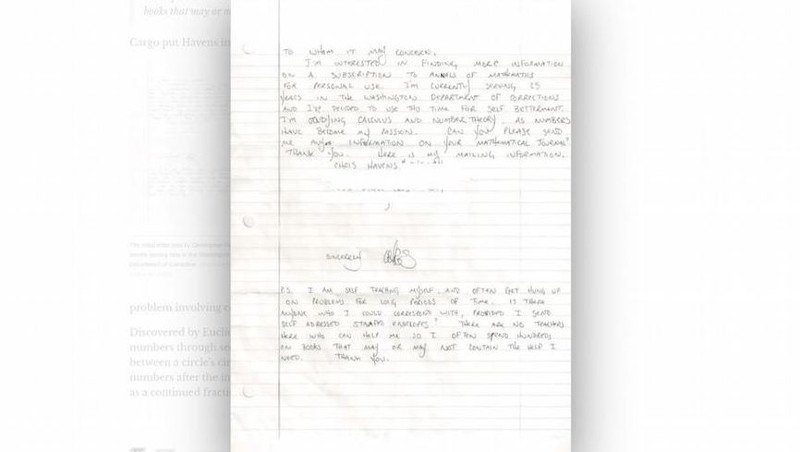 books that may or m
Cargo put Havens in
TO WHOM IT MAY CONCERN,
I'M INTERESTED IN FINDING MORE INFORMATION
ON A SUBSCRIPTION TO ANNALS OF MATHEMATICS
FOR PERSONAL USE. I'M CURRENTLY SERVING 25
YEARS IN THE WASHINGTON DEPARTMENT OF CORRECTIONS
AND I'VE DECIDED TO USE THIS TIME FOR SELF BETTERMENT.
I'M STUDYING CALCULUS AND NUMBER THEORY, AS NUMBERS
HAVE BECOME MY MISSION. CAN YOU PLEASE SEND
ME ANY INFORMATION ON YOUR MATHEMATICAL JOURNAL
THANK YOU. HERE IS MY MAILING INFORMATION.
CHRIS HAVENS
SINCERELY
P.S. I AM SELF TEACHING MYSELF, AND OFTEN GET HUNG UP
ON PROBLEMS FOR LONG PERIODS OF TIME. IS THERE
ANYONE WHO I COULD CORRESPOND WITH, PROVIDED I SEND
SELF ADDRESSED STAMPED ENVELOPES? THERE ARE NO TEACHERS
HERE WHO CAN HELP ME SO I OFTEN SPEND HUNDREDS
ON BOOKS THAT MAY OR MAY NOT CONTAIN THE HELP I
NEED. THANK YOU.
problem involving c
Discovered by Eucli
numbers through se
between a circle's ci
numbers after the in
as a continued fract